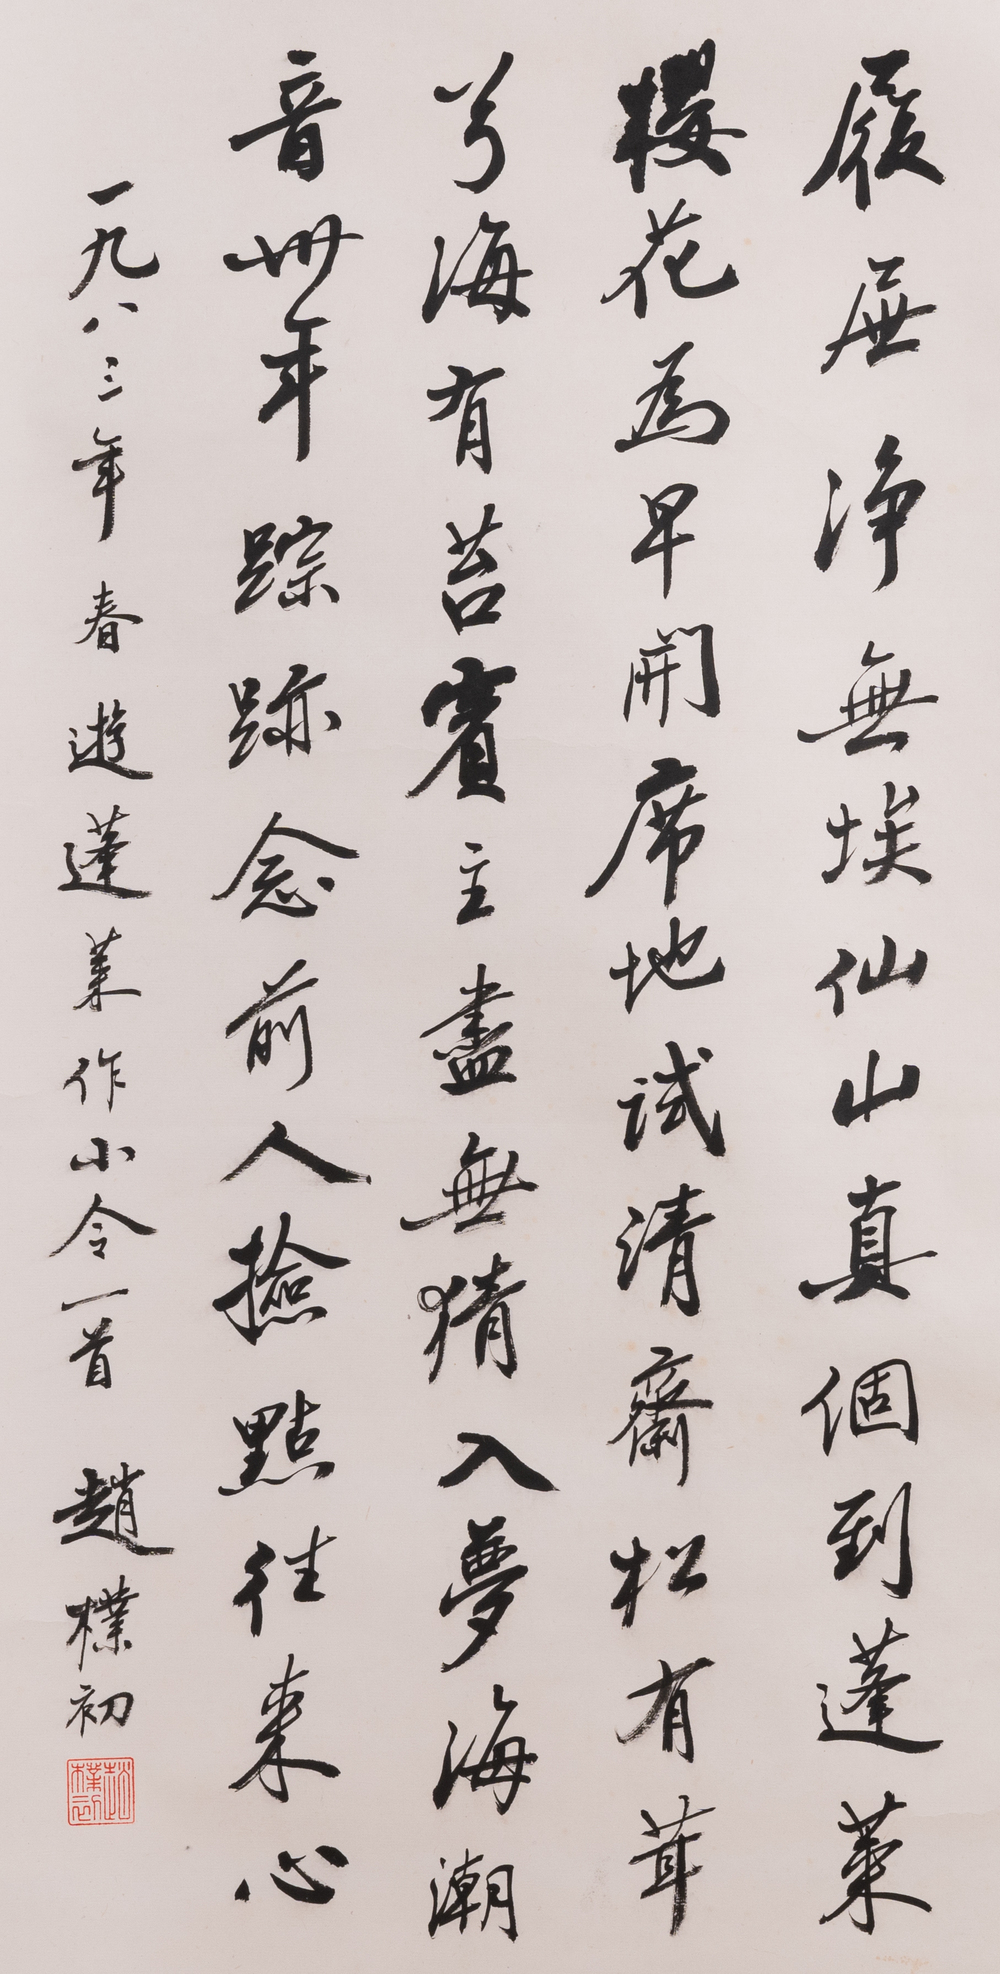 履屧净無埃仙山真個到蓬莱
櫻花為早開席地試清齋松有茸
兮海有苔賓主盡無猜入夢海潮
音卅年踪跡念前人撿點往来心
一九八三年春遊蓬莱作小令一首 趙樸初
趙樸初